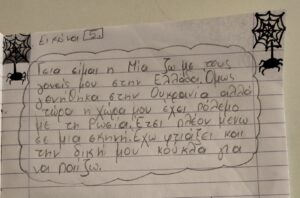 Εικόνα 5.
Γεια είμαι η Μία ζω με τους
γονείς μου στην Ελλάδα. Όμως
γεννήθηκα στην Ουκρανία αλλά
τώρα η χώρα μου έχει πόλεμο
με τη Ρωσία. Έτσι πλέον μένω
σε μια σκηνή. Έχω φτιάξει και
την δική μου κούκλα για
να παίζω.